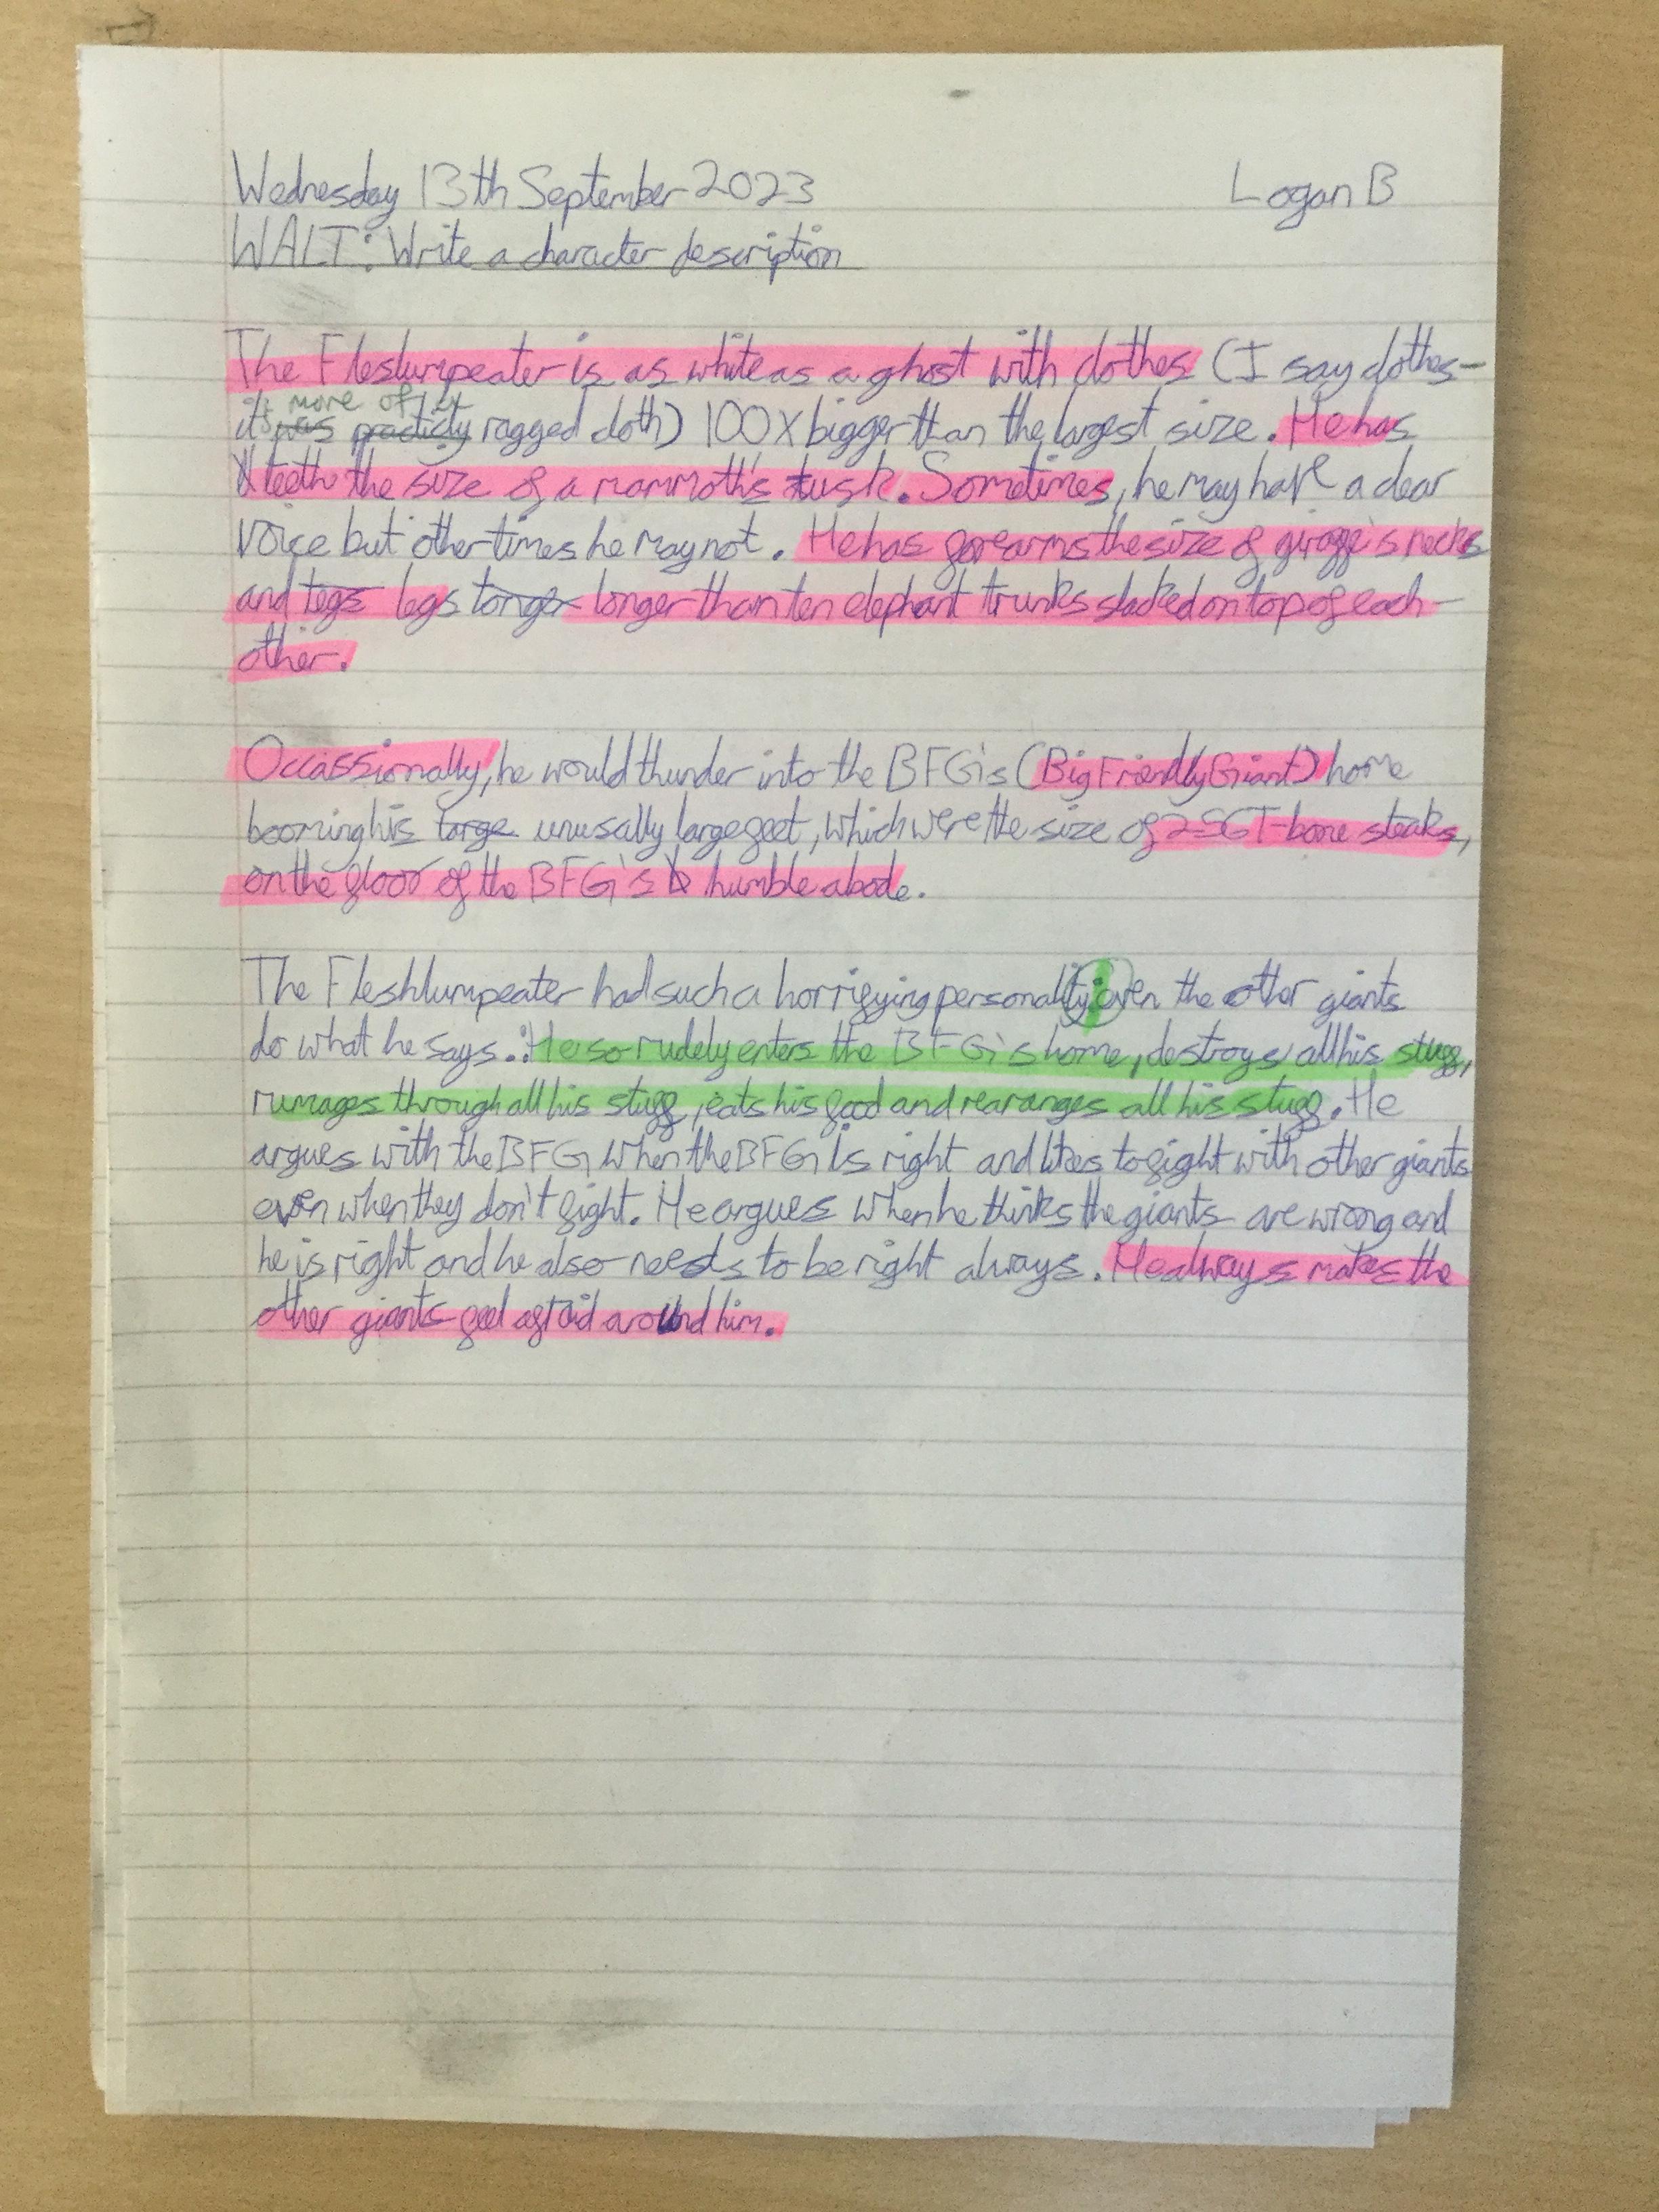 Wednesday 13th September 2023 Logan B
WALT: Write a character description
The Fleslumpeater is as white as a ghost with clothes (I say clothes-
more of a
it was practicly ragged cloth) 100X bigger than the largest size. He has
teeth the size of a mammoth's tusk. Sometimes, he may have a clear
voice but other times he may not. He has forearms the size of giraffe's necks
and legs legs longer longer than ten elephant trunks stacked on top of each-
other.
Occassionally, he would thunder into the BFG's (Big Friendly Giant) home
booming his large unusally large feet, which were the size of 256 T-bone steaks,
on the floor of the BFG's humble abode.
The Fleshlumpeater had such a horrifying personality; even the other giants
do what he says. He so rudely enters the BFG's home, destroys all his stuff,
rumages through all his stuff, eats his food and rearanges all his stuff. He
argues with the BFG when the BFG is right and likes to fight with other giants
even when they don't fight. He argues when he thinks the giants are wrong and
he is right and he also needs to be right always. He always makes the
other giants feel afraid around him.